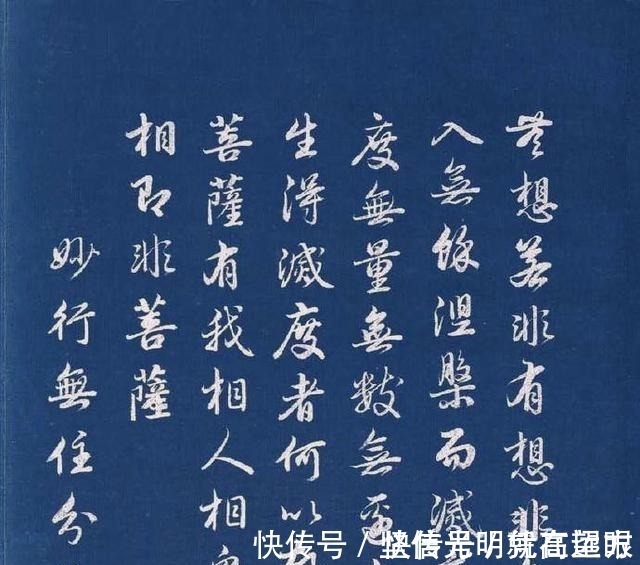 無想若非有想非
入無餘涅槃而滅
度無量無數無邊
生得滅度者何以
菩薩有我相人相眾
相即非菩薩
妙行無住分
快传号/